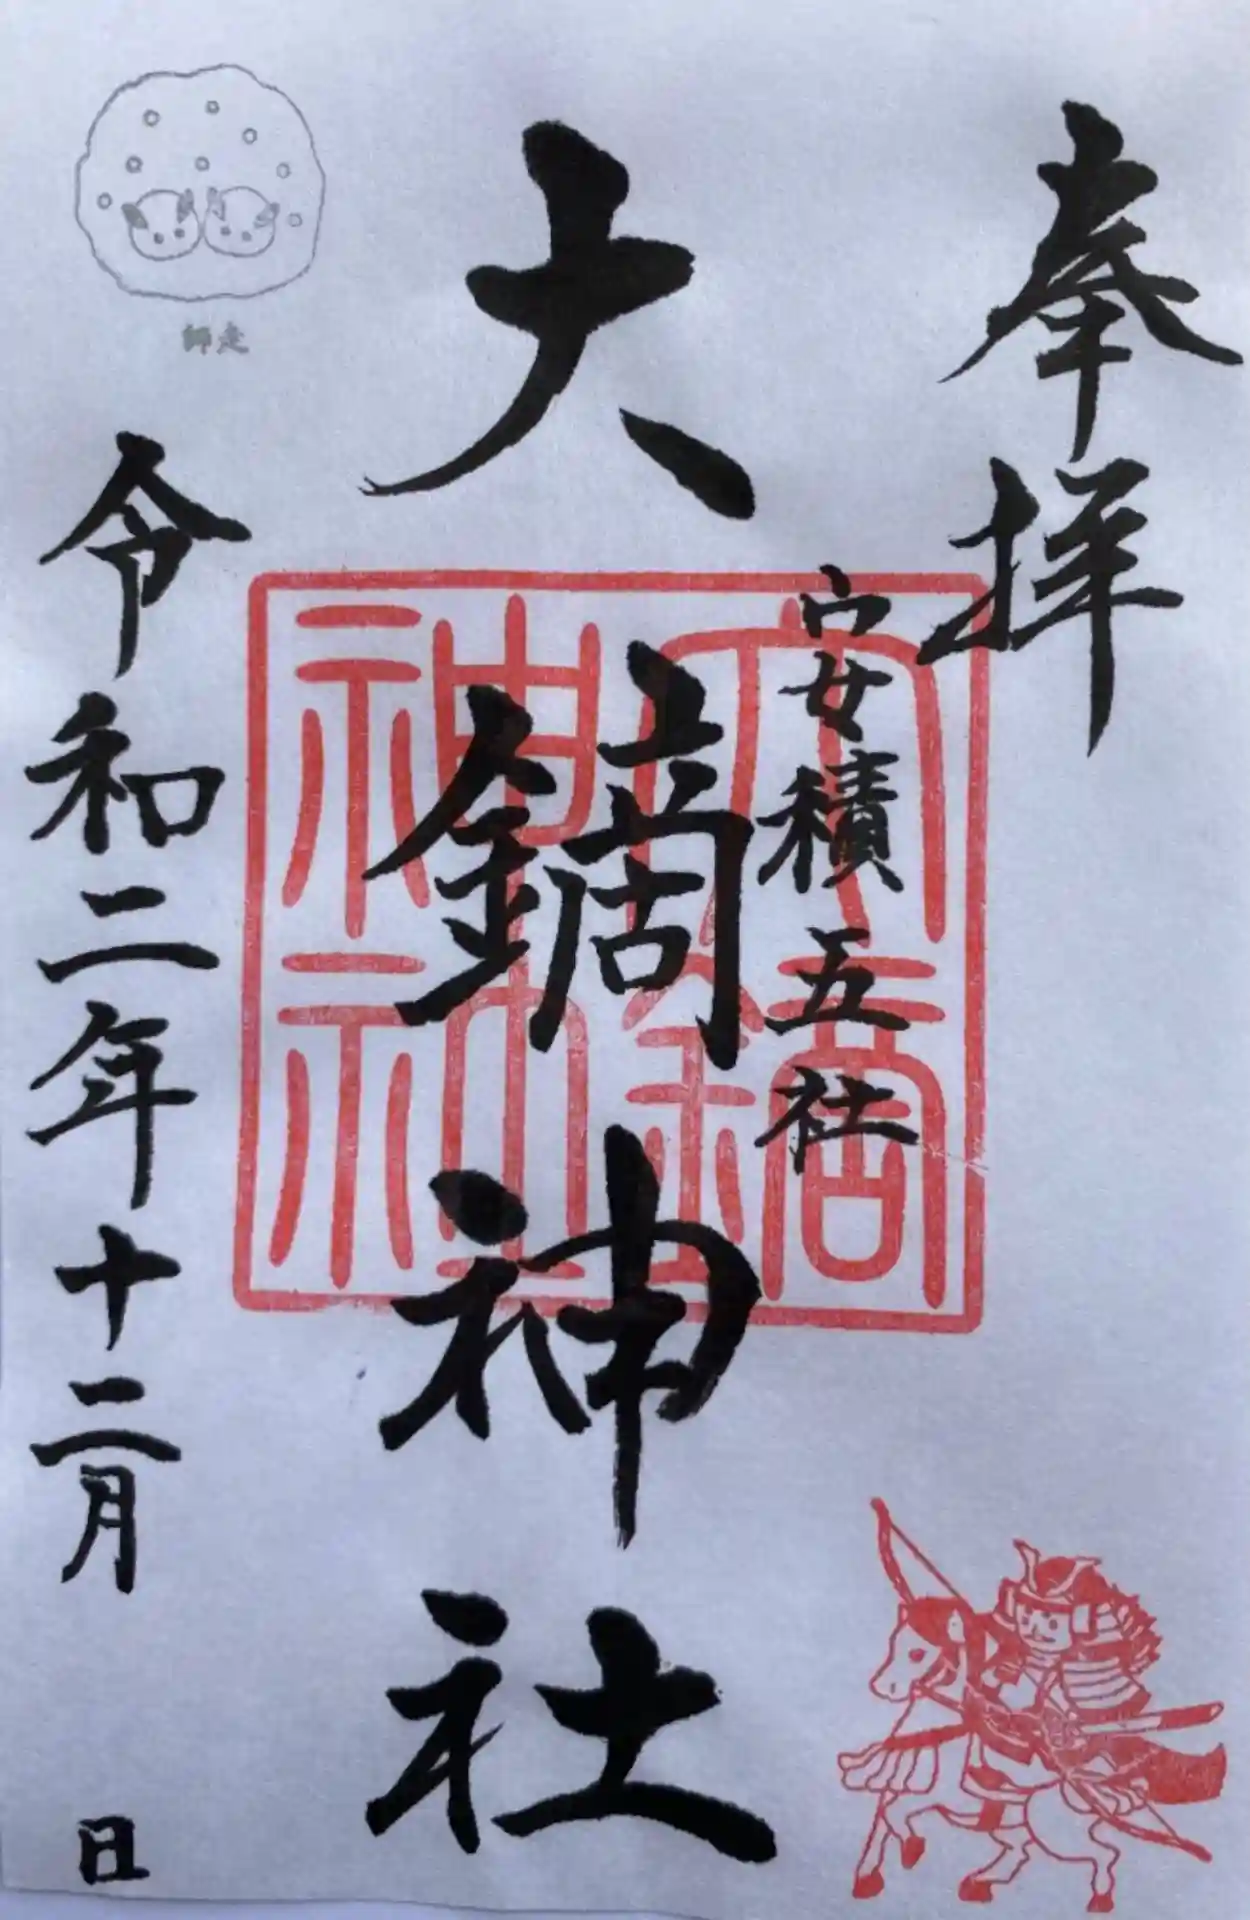 奉拝
安積五社
大鏑神社
大鏑
神社
師走
令和二年十二月 日